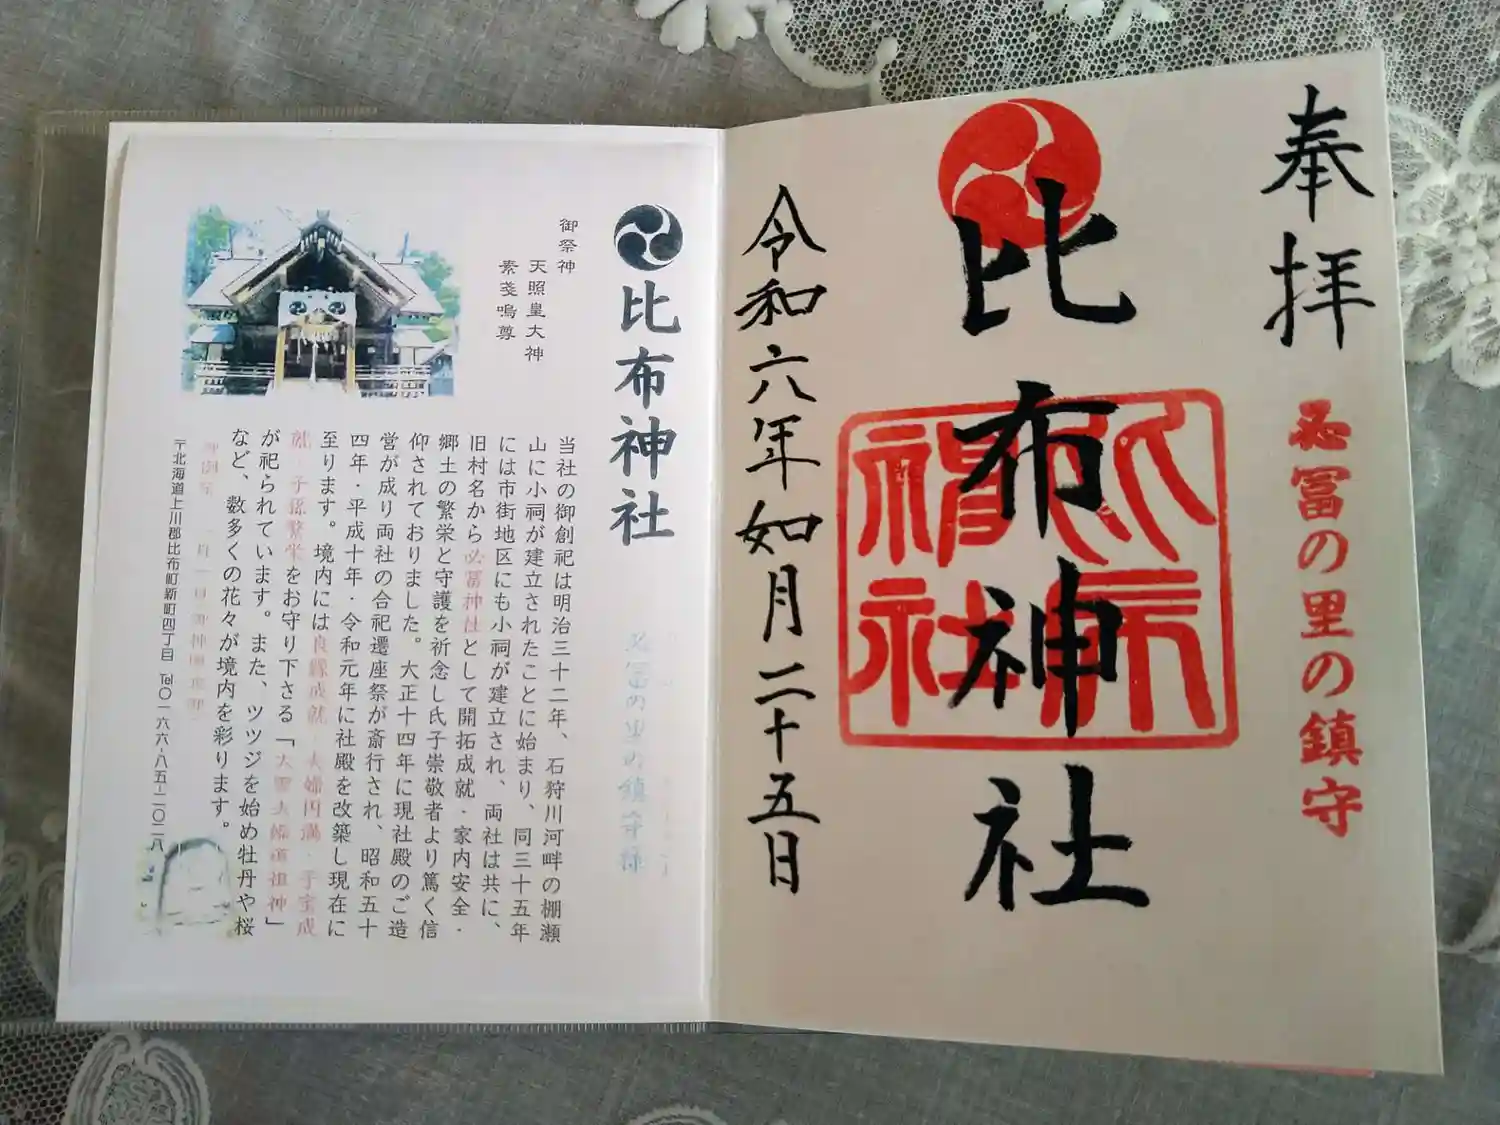 奉拝
必冨の里の鎮守
比布神社
比布神社
令和六年如月二十五日
比布神社
御祭神
天照皇大神
素戔嗚尊
当社の御創祀は明治三十二年、石狩川河畔の棚瀬
山に小祠が建立されたことに始まり、同三十五年
には市街地区にも小祠が建立され、両社は共に、
旧村名から必冨神社として開拓成就・家内安全・
郷土の繁栄と守護を祈念し氏子崇敬者より篤く信
仰されておりました。大正十四年に現社殿のご造
営が成り両社の合祀遷座祭が斎行され、昭和五十
四年・平成十年・令和元年に社殿を改築し現在に
至ります。境内には良縁成就・夫婦円満・子宝成
就・子孫繁栄をお守り下さる「大雪夫婦道祖神」
が祀られています。また、ツツジを始め牡丹や桜
など、数多くの花々が境内を彩ります。
〒北海道上川郡比布町新町四丁目 ℡〇一六六-八五-二〇二八